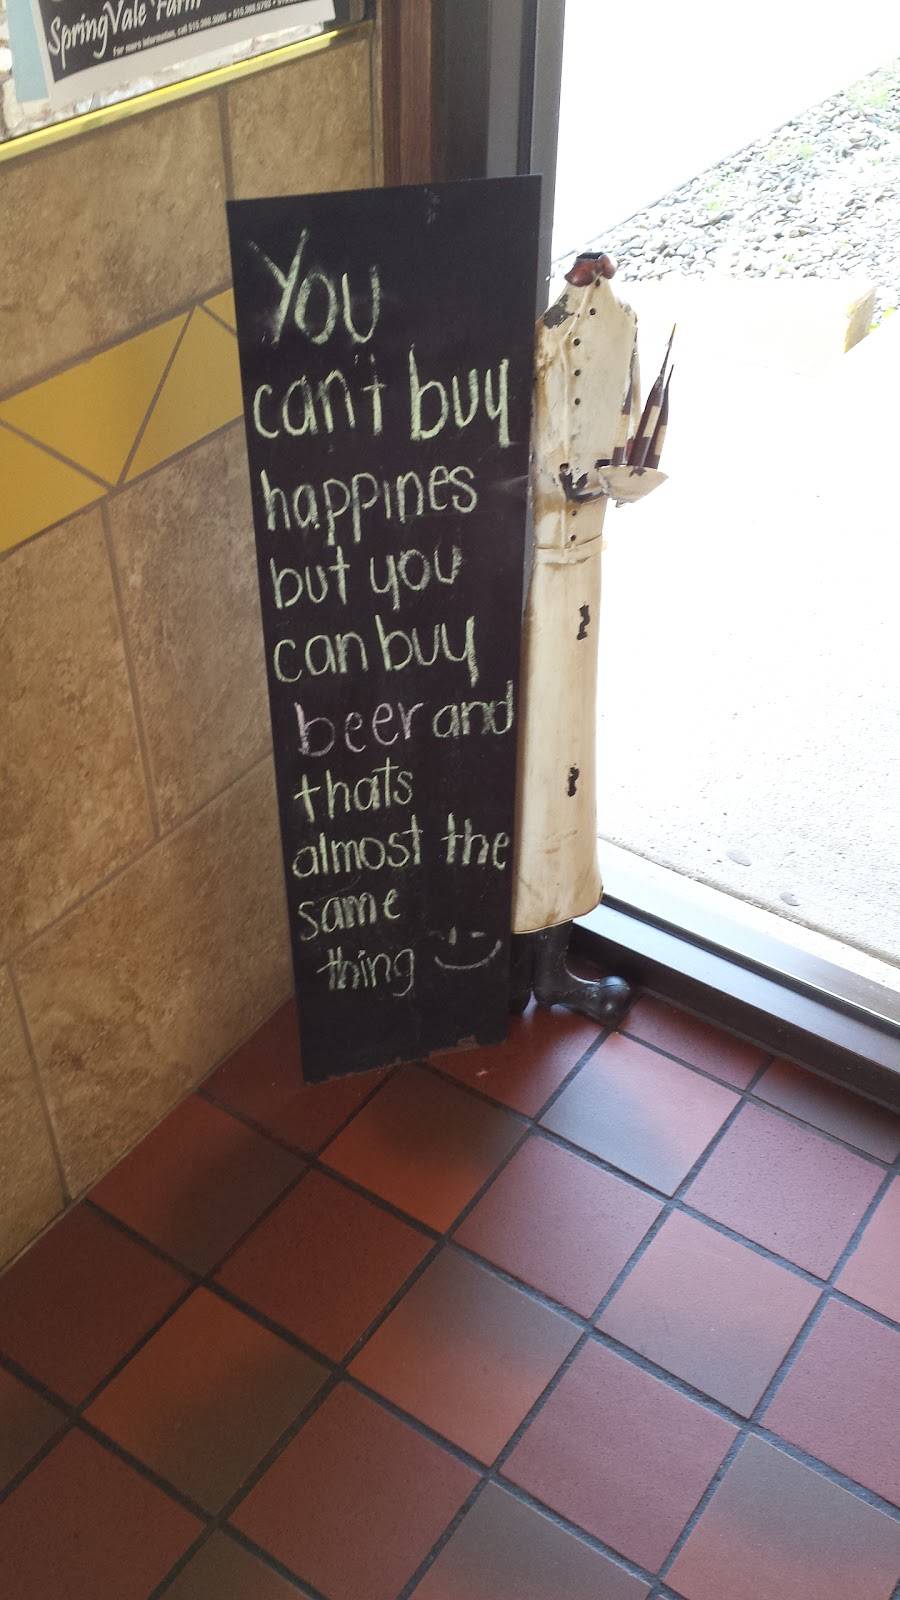 SpringVale Farm
For more information, call 515.988.9095 • 515.988.5793 •
You
can't buy
happines
but you
can buy
beer and
thats
almost the
same
thing